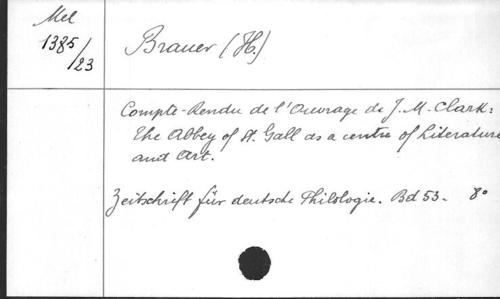 Mel
1385
/23
Brauer (H.)
Compte-Rendu de l'Ouvrage de J.M. Clark:
The Abbey of St. Gall as a centre of Literature
and Art.
Zeitschrift für deutsche Philologie. Bd 53. 8°